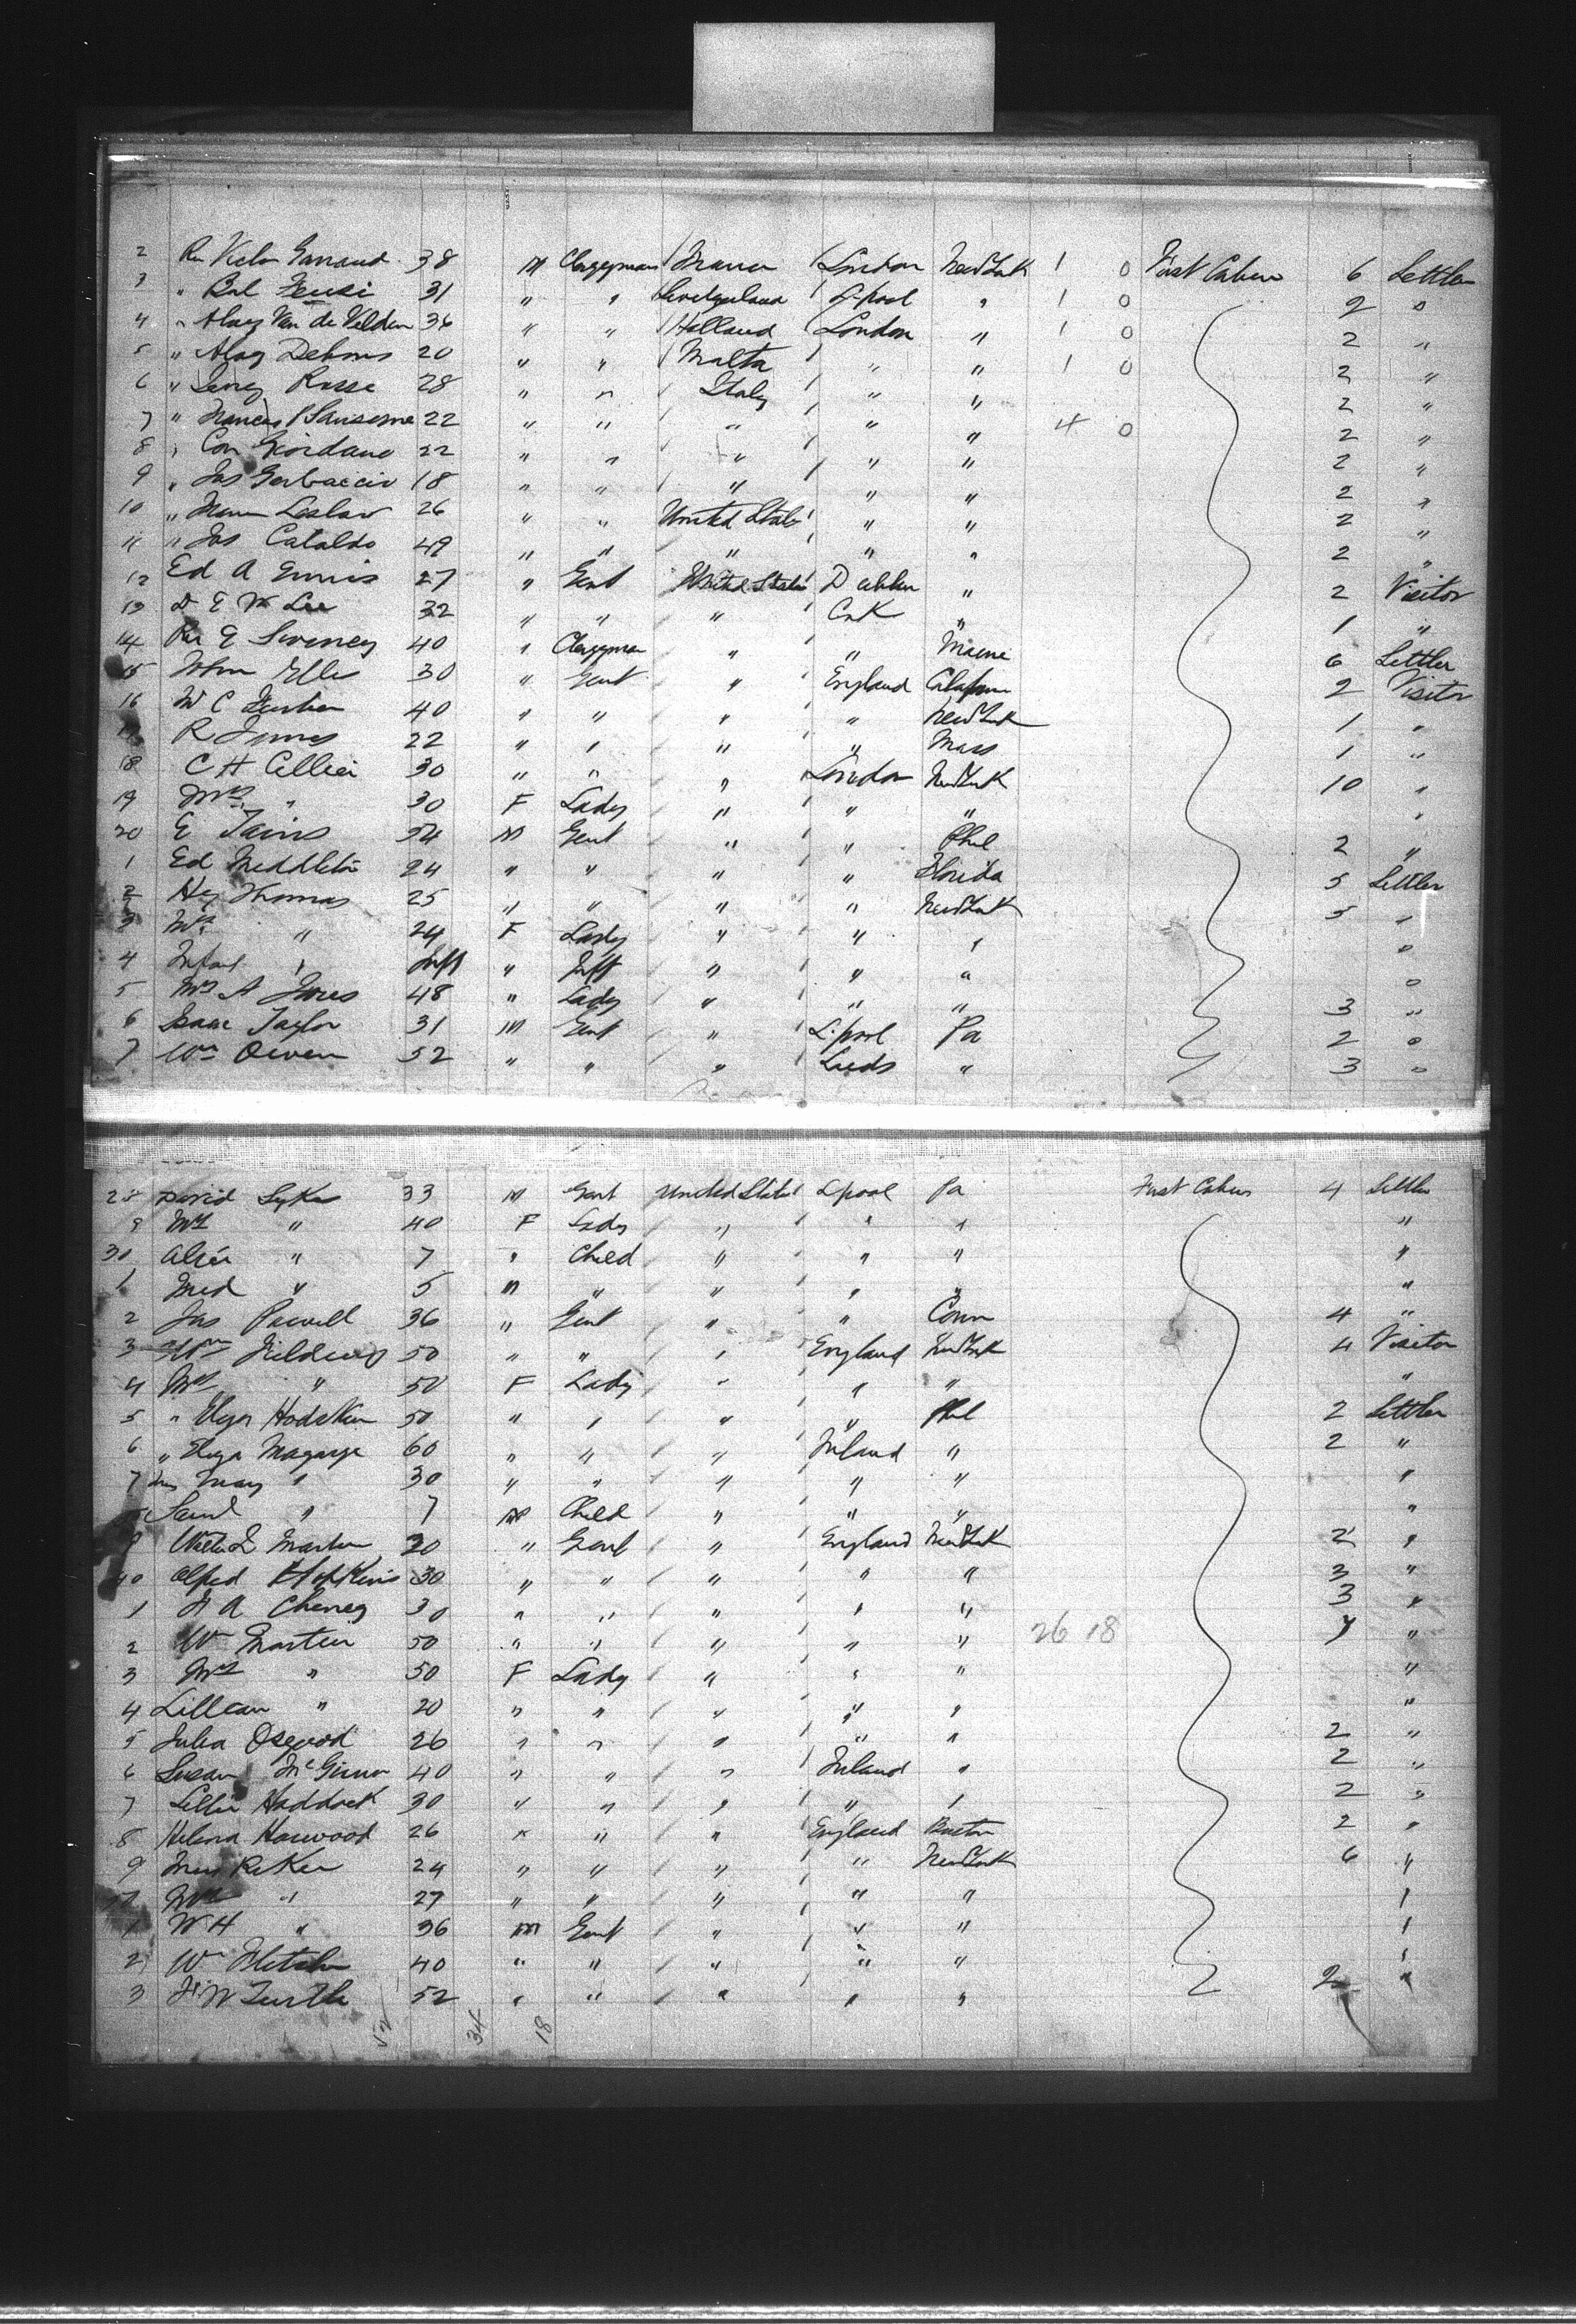 2 Rev Victor Garraud 38 M Clergyman France London New York 1 0 First Cabin 6 Settler
3 " 31 " " Switzerland L.pool " 1 0 2 "
4 " Aloy Van de Velden 36 " " Holland London " 1 0 2 "
5 " Aloy Debons 20 " " Malta " " 1 0 2 "
6 " Russe 28 " " Italy " " 2 "
7 " Francis Sansome 22 " " " " " 4 0 2 "
8 " Con Giordano 22 " " " " " 2 "
9 " Jas Gerbaccio 18 " " " " " 2 "
10 " Leslav 26 " " United States " " 2 "
11 " Jas Cataldo 49 " " " " " 2 "
12 Ed A Ennis 27 " Gent United States Dublin " 2 Visitor
13 D E W Lee 32 " " " Cork " 1 "
14 Rev E Sweeney 40 " Clergyman " " Maine 6 Settler
15 Wm Ellis 30 " Gent " England 2 Visitor
16 W C 40 " " " " New York 1 "
17 R Jones 22 " " " " Mass 1 "
18 C H Collier 30 " " " London New York 10 "
19 Mrs " 30 F Lady " " " "
20 E 54 M Gent " " Phil 2 "
1 Ed Middleton 24 " " " " Florida 5 Settler
2 Hy Thomas 25 " " " " New York 5 "
3 Mrs " 24 F Lady " " " "
4 Infant " Inft " Inft " " " "
5 Mrs A Jones 48 " Lady " " " 3 "
6 Isaac Taylor 31 M Gent " L.pool Pa 2 "
7 Wm Owen 52 " " " Leeds " 3 "
28 David Sykes 33 M Gent United States L pool Pa First Cabin 4 Settler
9 Mrs " 40 F Lady " " " "
30 Alice " 7 " Child " " " "
1 Fred " 5 M " " " " "
2 Jas Powell 36 " Gent " " Conn 4 "
3 Wm Fielding 50 " " " England New York 4 Visitor
4 Mrs " 50 F Lady " " " "
5 " Eliza Hodskin 50 " " " " Phil 2 Settler
6 " Eliza Magarge 60 " " " Ireland " 2 "
7 Miss May " 30 " " " " " "
8 Saml " 7 M Child " " " "
9 Walter L Martin 20 " Gent " England New York 2 "
40 Alfred Hopkins 30 " " " " " 3 "
1 F A Cheney 30 " " " " " 3 "
2 W Martin 50 " " " " " 26 18 7 "
3 Mrs " 50 F Lady " " " "
4 Lillian " 20 " " " " " "
5 Julia Osgood 26 " " " " " 2 "
6 Susan McGinn 40 " " " Ireland " 2 "
7 Lillie Haddock 30 " " " " " 2 "
8 Helena Harwood 26 " " " England Boston 2 "
9 Miss Riker 24 " " " " New York 6 "
Mrs " 27 " " " " " "
1 W H " 36 M Gent " " " "
2 Wm Fletcher 40 " " " " " "
3 52 " " " " " 2 "
52 34 18